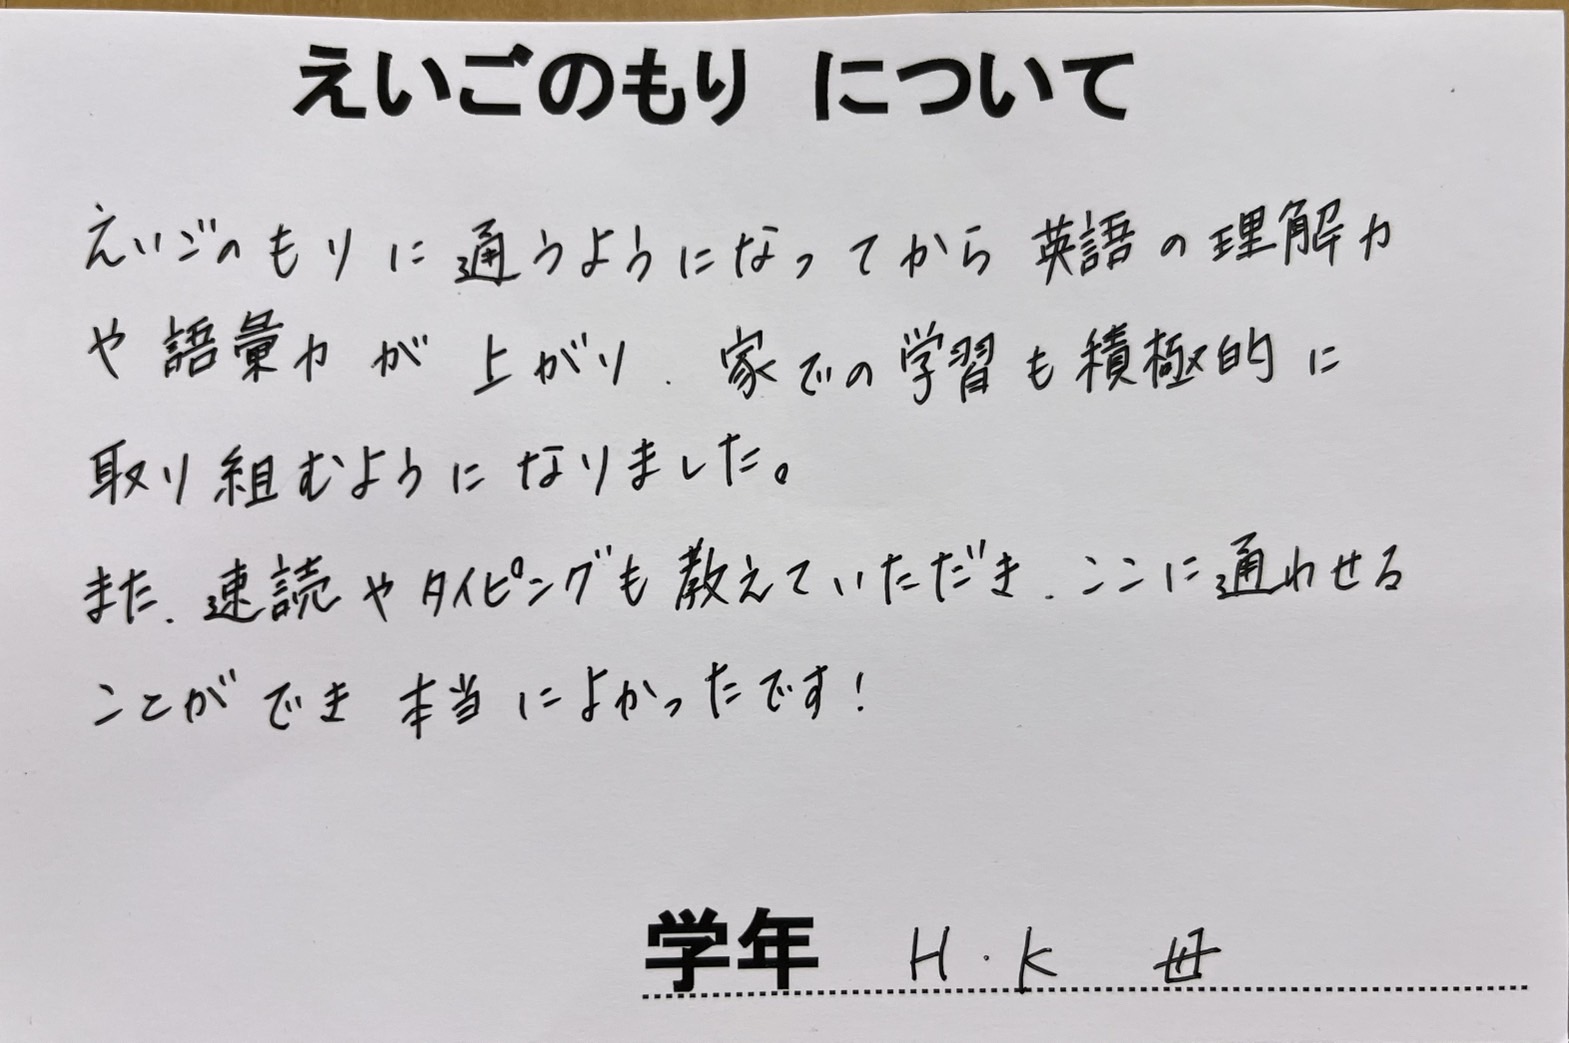 えいごのもり について
えいごのもりに通うようになってから英語の理解力
や語彙力が上がり、家での学習も積極的に
取り組むようになりました。
また、速読やタイピングも教えていただき、ここに通わせる
ことができ本当によかったです！
学年 H・K 母